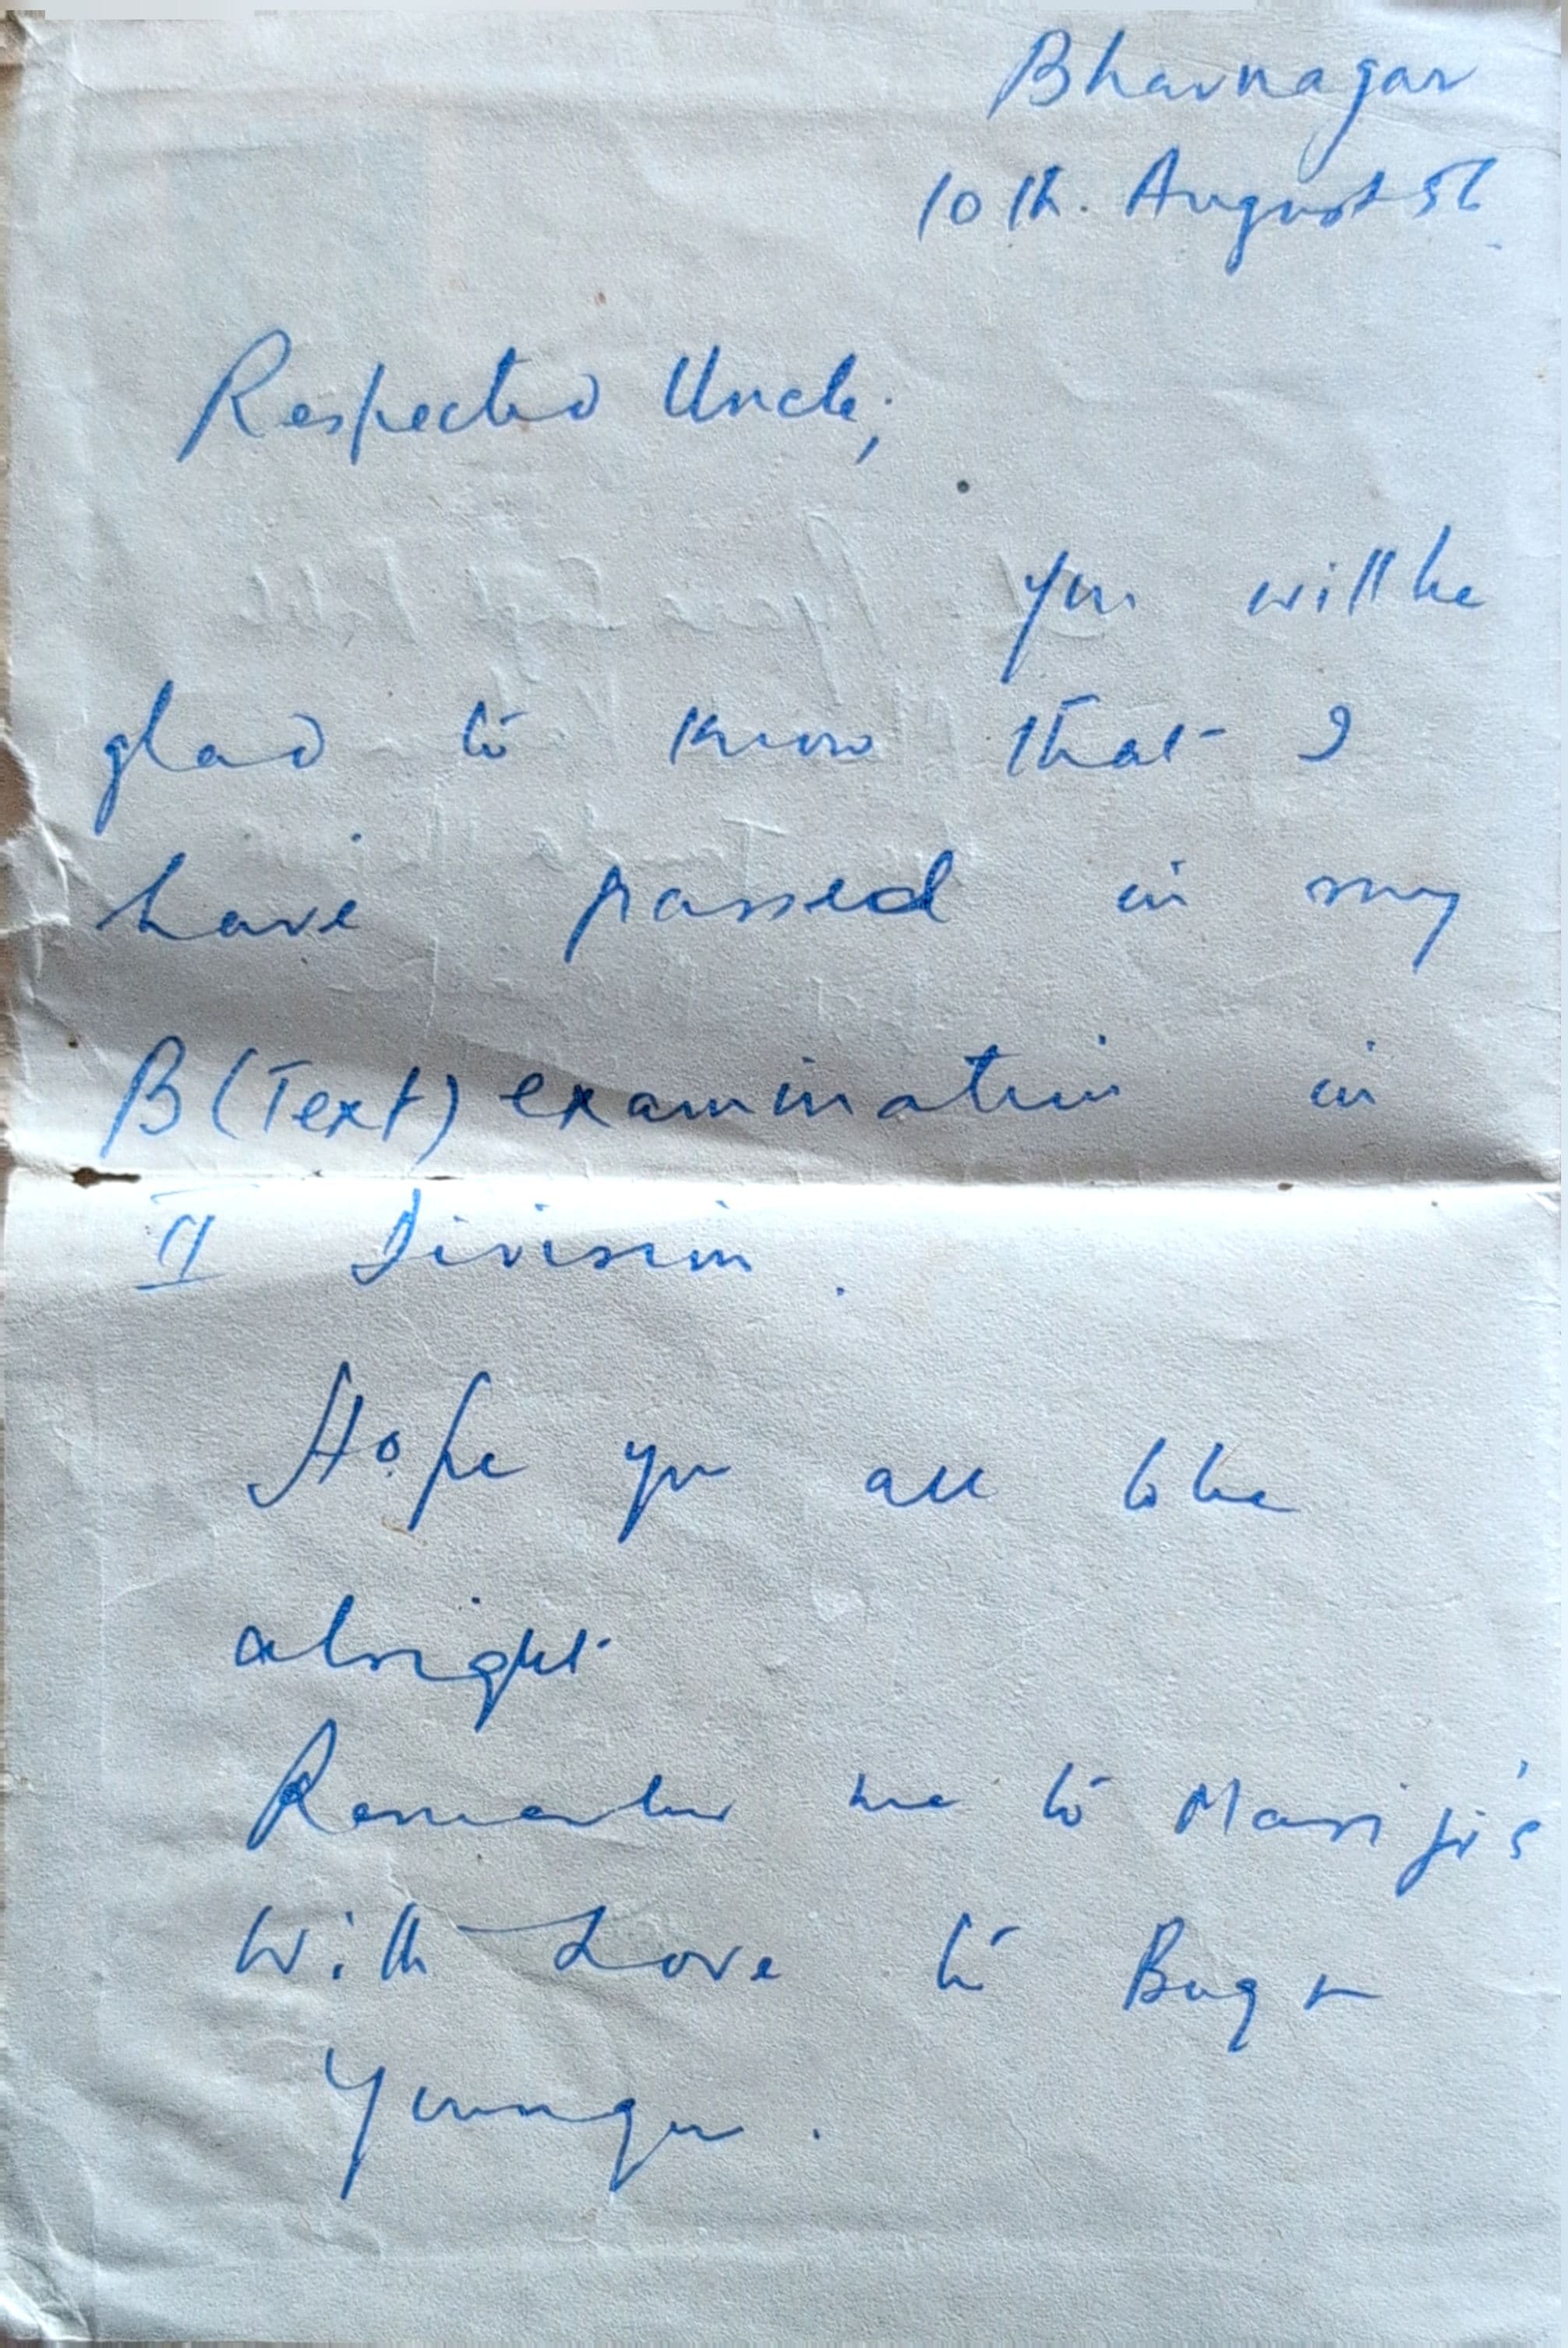 Bhavnagar
10th. August 56
Respected Uncle,
you will be
glad to know that I
have passed in my
B(Text) examination in
II Division.
Hope you all to be
alright
Remember me to Masiji's
With Love to Bugr
Younger.